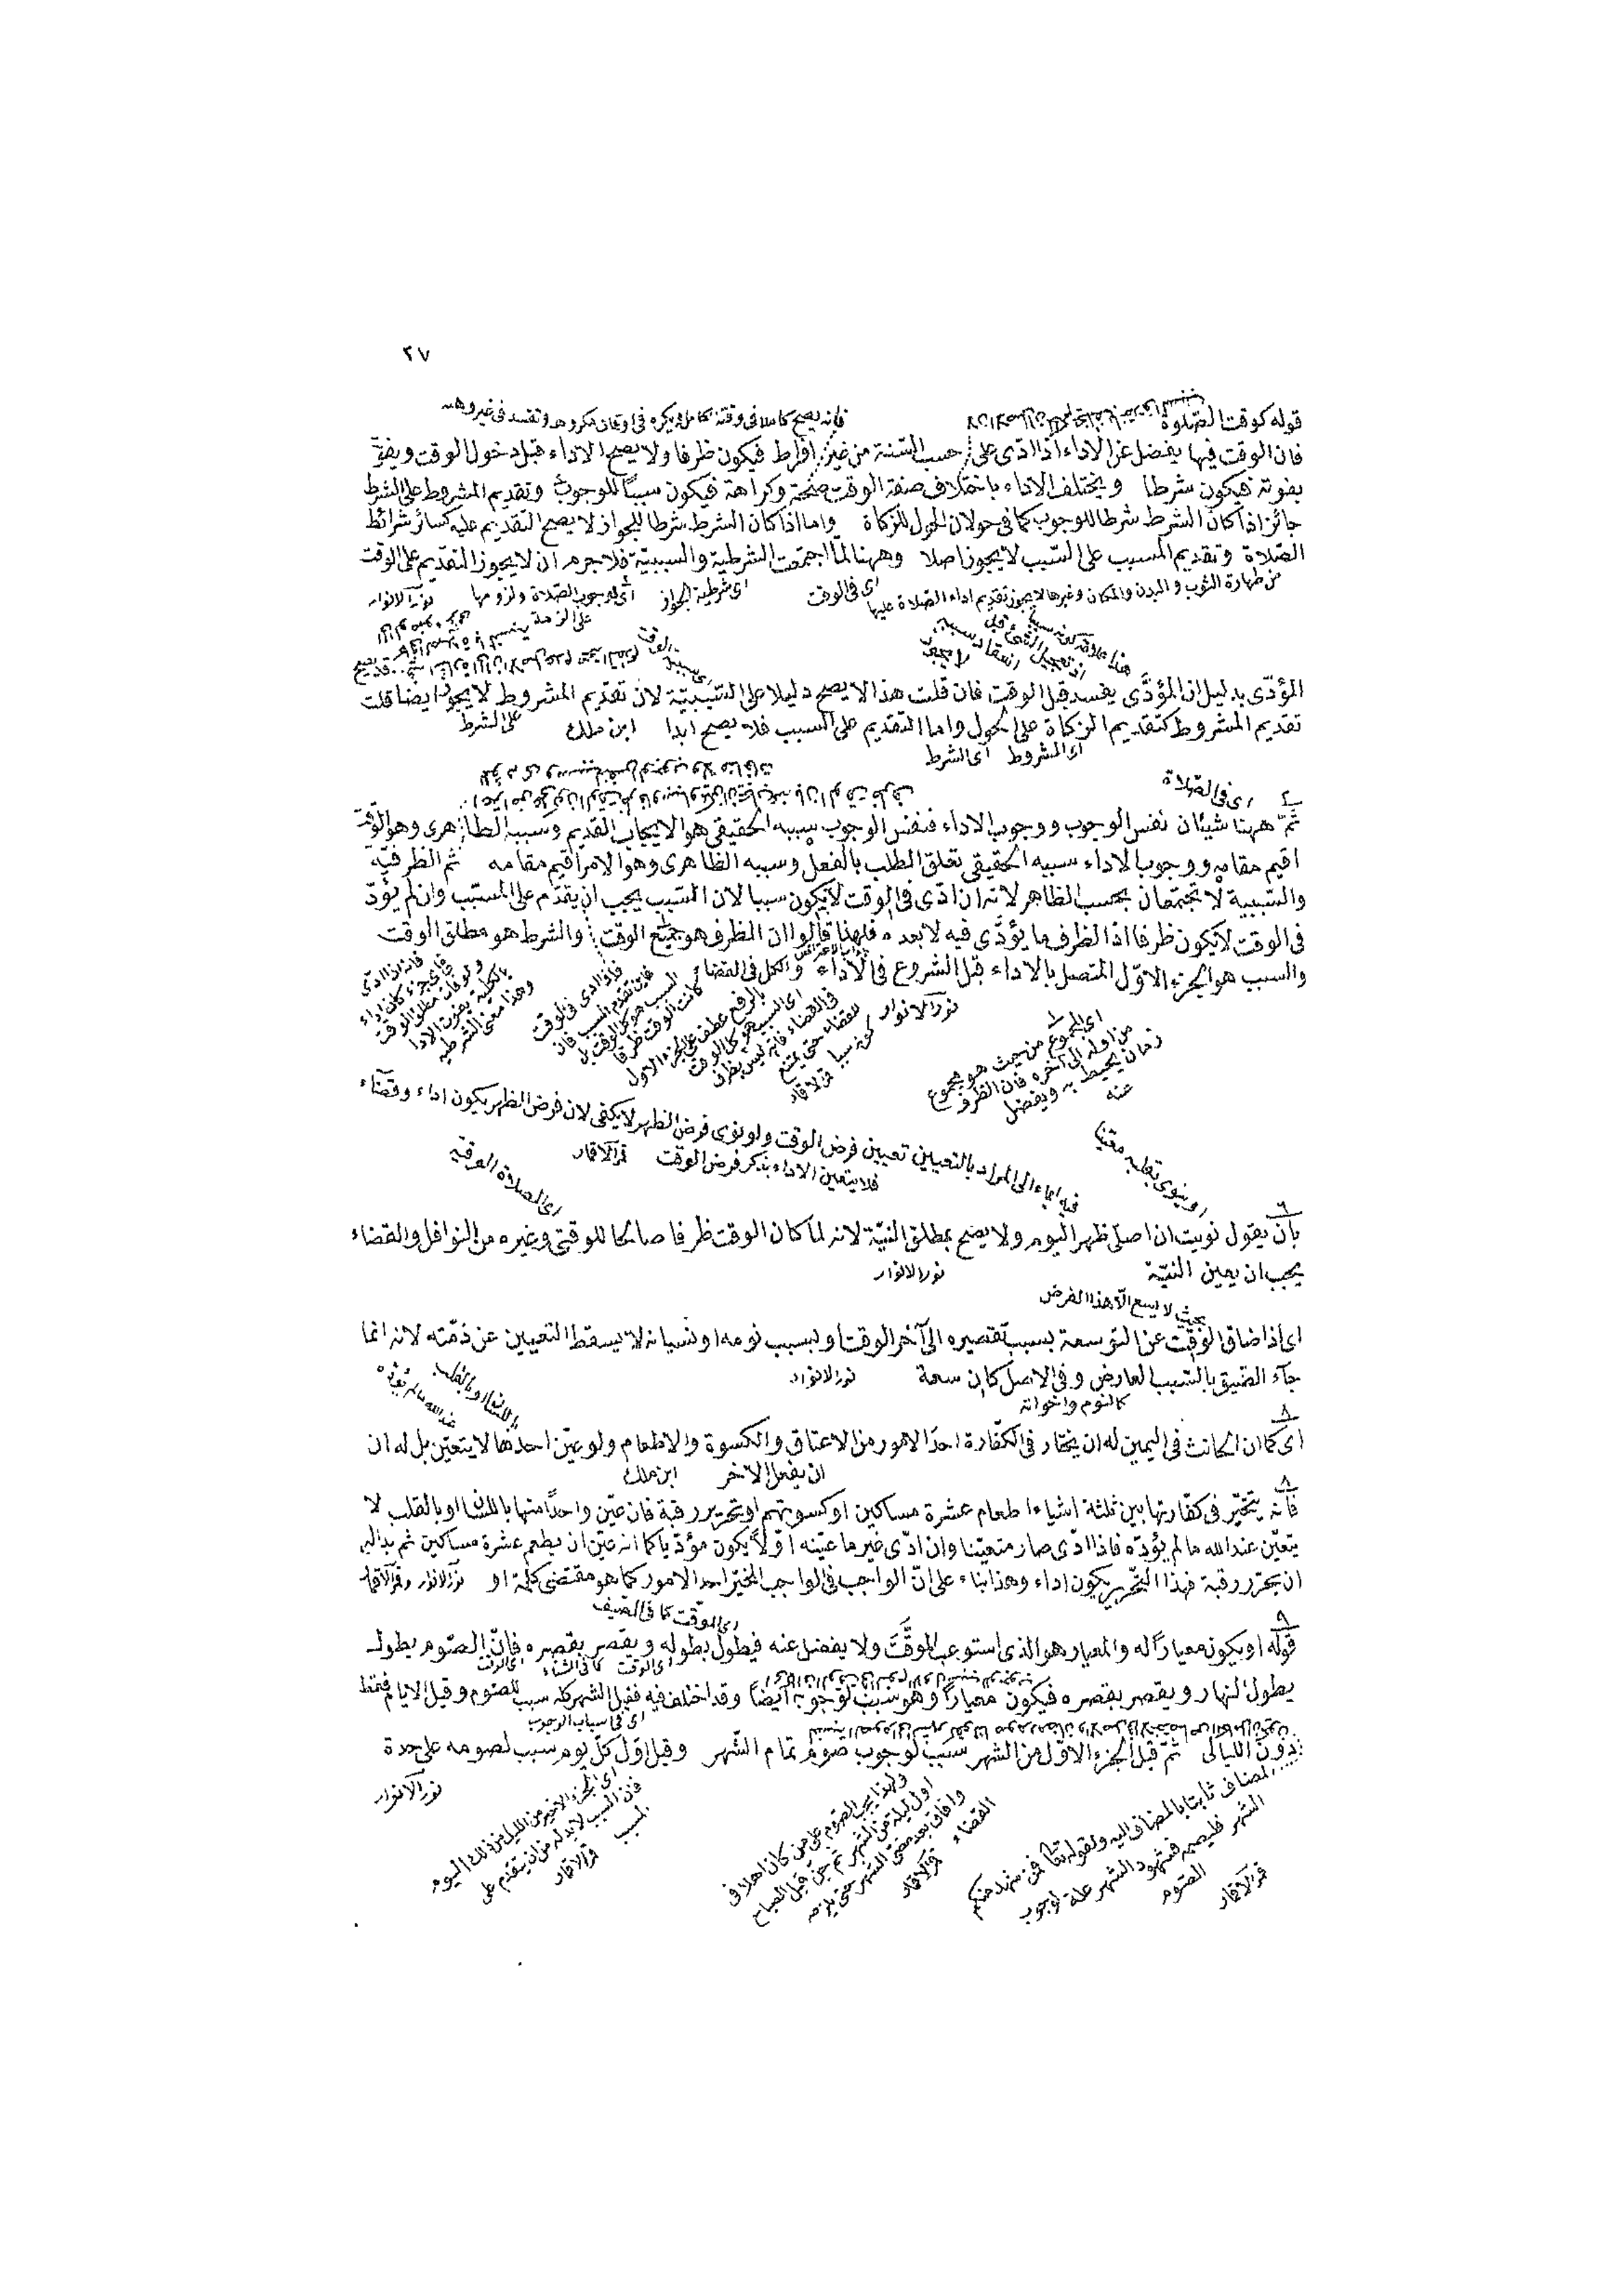 ٢٧
قوله كوقت الصلوة
فانه يصح كاملا فى وقته كامل ويكره فى اوقات مكروهه وتفسد فى غير وقته
فان الوقت فيها يفضل عن الاداء اذا ادى على حسب السنة من غير افراط فيكون ظرفا ولا يصح الاداء قبل دخول الوقت ويفوت
بفوته فيكون شرطا ويختلف الاداء باختلاف صفة الوقت صحة وكراهة فيكون سببا للوجوب وتقديم المشروط على الشرط
جائز اذا كان الشرط شرطا للوجوب كما فى حولان الحول للزكاة واما اذا كان الشرط شرطا للجواز لا يصح التقديم عليه كسائر شرائط
الصلاة وتقديم المسبب على السبب لا يجوز اصلا وههنا لما اجتمعت الشرطية والسببية فلا جرم ان لا يجوز التقديم على الوقت
من طهارة الثوب والبدن والمكان وغيرها لا يجوز تقديم اداء الصلاة عليها
اى فى الوقت
اى شرطية الجواز
اى لوجوب الصلاة ولزومها
نور الانوار
ان تعجيل الشئ قبل
انعقاد سببه
لا يجوز
المؤدى بدليل ان المؤدى يفسد قبل الوقت فان قلت هذا لا يصح دليلا على السببية لان تقديم المشروط لا يجوز ايضا قلت
تقديم المشروط كتقديم الزكاة على الحول واما التقديم على السبب فلا يصح ابدا ابن ملك
على الشرط
اى المشروط
اى الشرط
اى فى الصلاة
ثم ههنا شيئان نفس الوجوب ووجوب الاداء فنفس الوجوب سببه الحقيقى هو الايجاب القديم وسببه الظاهرى وهو الوقت
اقيم مقامه ووجوب الاداء سببه الحقيقى تعلق الطلب بالفعل وسببه الظاهرى وهو الامر اقيم مقامه ثم الظرفية
والسببية لا تجتمعان بحسب الظاهر لانه ان ادى فى الوقت لا يكون سببا لان السبب يجب ان يقدم على المسبب وان لم يؤد
فى الوقت لا يكون ظرفا اذ الظرف ما يؤدى فيه لا بعده فلهذا قالوا ان الظرف هو جميع الوقت والشرط هو مطلق الوقت
والسبب هو الجزء الاول المتصل بالاداء قبل الشروع فى الاداء والكل فى القضاء
نور الانوار
اى المجموع من حيث هو مجموع
من اوله الى آخره فان الظرف
زمان يحيط به ويفضل
عنه
بالرفع عطف على الجزء الاول
اى السبب هو كل الوقت
فى القضاء فانه ليس بظرف
للقضاء حتى يمتنع
كونه سببا
قمر الاقمار
فاذا ادى فى الوقت
فاين تقدم السبب فان
السبب هو كل الوقت بل
كانت الوقت ظرفا
فانه اذا ادى
فى اى جزء كان اداء
ولو فات مطلق الوقت
بالكلية يفوت الادا
وهذا معنى الشرطية
او ينوى بقلبه معينا
فيه ايماء الى المراد بالتعيين تعيين فرض الوقت ولو نوى فرض الظهر لا يكفى لان فرض الظهر يكون اداء وقضاء
فلا يتعين الاداء بذكر فرض الوقت
قمر الاقمار
اى الصلاة الوقتية
بان يقول نويت ان اصلى ظهر اليوم ولا يصح بمطلق النية لانه لما كان الوقت ظرفا صالحا للوقتى وغيره من النوافل والقضاء
يجب ان يعين النية
نور الانوار
بحيث لا يسع الا هذا الفرض
اى اذا ضاق الوقت عن التوسعة بسبب تقصيره الى آخر الوقت او بسبب نومه او نسيانه لا يسقط التعيين عن ذمته لانه انما
جاء الضيق بالسبب العارض وفى الاصل كان سعة
نور الانوار
كالنوم واخواته
باللسان او بالقلب
عند الله ما لم يؤده
٨
اى كما ان الحانث فى اليمين له ان يختار فى الكفارة احد الامور من الاعتاق والكسوة والاطعام ولو عين احدها لا يتعين بل له ان
ان يفعل الآخر ابن ملك
٨
فانه يتخير فى كفارتها بين ثلثة اشياء اطعام عشرة مساكين او كسوتهم او تحرير رقبة فان عين واحدا منها باللسان او بالقلب لا
يتعين عند الله ما لم يؤده فاذا ادى صار متعينا وان ادى غير ما عينه اولا يكون مؤديا كما انه عين ان يطعم عشرة مساكين ثم بدا له
ان يحرر رقبة فهذا التحرير يكون اداء وهذا بناء على ان الواجب فى الواجب المخير احد الامور كما هو مقتضى كلمة او نور الانوار وقمر الاقمار
اى الوقت كما فى الصيف
٩
قوله او يكون معيارا له والمعيار هو الذى استوعب الموقت ولا يفضل عنه فيطول بطوله ويقصر بقصره فان الصوم يطول
اى الوقت كما فى الشتاء
اى الوقت
بطول النهار ويقصر بقصره فيكون معيارا وهو سبب لوجوبه ايضا وقد اختلف فيه فقيل الشهر كله سبب للصوم وقيل الايام فقط
اى فى اسباب الوجوب
دون الليالى ثم قيل الجزء الاول من الشهر سبب لوجوب صوم تمام الشهر وقيل اول كل يوم سبب لصومه على حدة
نور الانوار
المضاف ثابتا بالمضاف اليه ولقوله تعالى فمن شهد منكم
الشهر فليصمه فشهود الشهر علة لوجوب
الصوم
قمر الاقمار
ولهذا يجب الصوم على من كان اهلا فى
اول ليلة من الشهر ثم جن قبل الصباح
وافاق بعد مضى الشهر حتى يلزمه
القضاء
قمر الاقمار
اى الجزء الاخير من الليل من ذلك اليوم
فان السبب لا بد له من ان يتقدم على
المسبب
قمر الاقمار